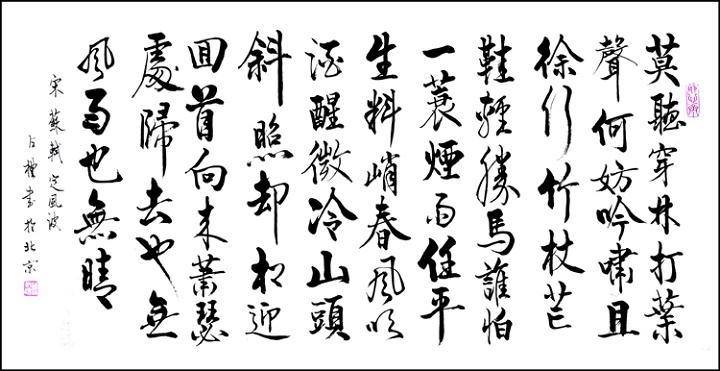 莫聽穿林打葉
聲何妨吟嘯且
徐行竹杖芒
鞋輕勝馬誰怕
一蓑煙雨任平
生料峭春風吹
酒醒微冷山頭
斜照却相迎
回首向来蕭瑟
處歸去也無
風雨也無晴
宋蘇軾定風波
書於北京